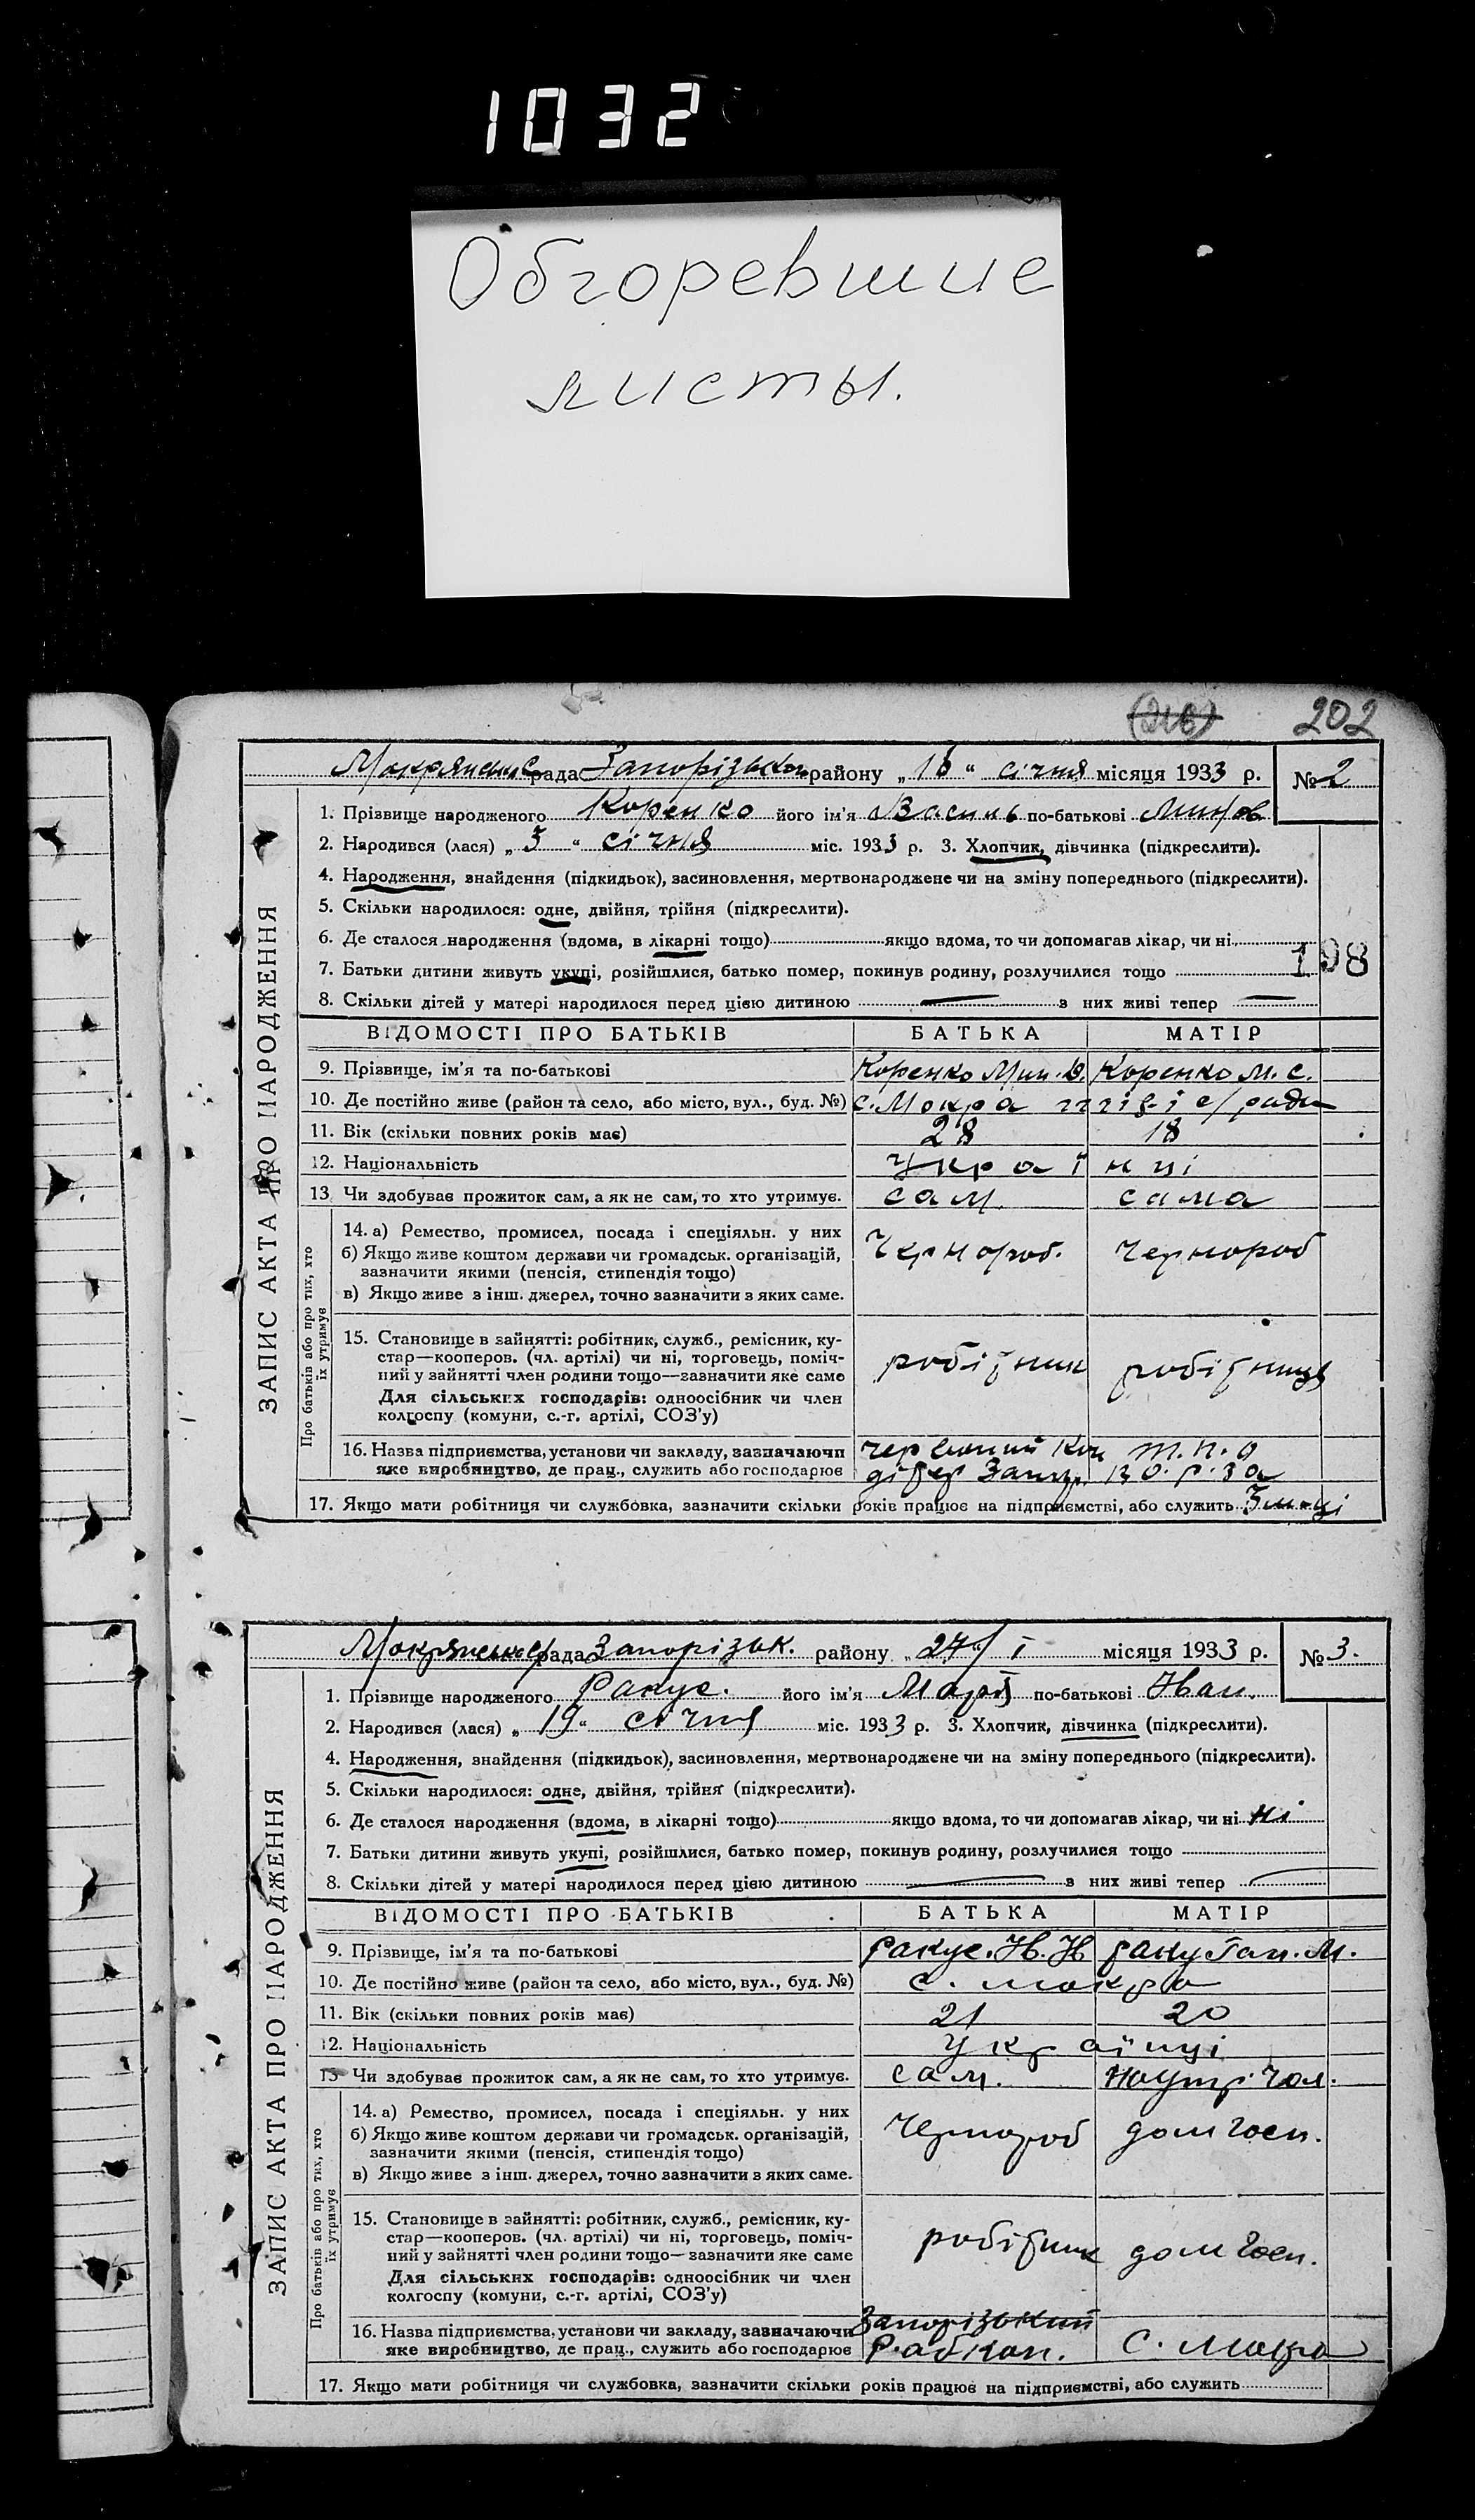 1032
Обгоревшие
листы.
(216) 202
Мокрянська рада Запорізького району „ 16 " січня місяця 1933 р. № 2
ЗАПИС АКТА ПРО НАРОДЖЕННЯ
1. Прізвище народженого Коренко його ім'я Василь по-батькові
2. Народився (лася) „ 3 " січня міс. 1933 р. 3. Хлопчик, дівчинка (підкреслити).
4. Народження, знайдення (підкидьок), засиновлення, мертвонароджене чи на зміну попереднього (підкреслити).
5. Скільки народилося: одне, двійня, трійня (підкреслити).
6. Де сталося народження (вдома, в лікарні тощо) якщо вдома, то чи допомагав лікар, чи ні
198
7. Батьки дитини живуть укупі, розійшлися, батько помер, покинув родину, розлучилися тощо
8. Скільки дітей у матері народилося перед цією дитиною — з них живі тепер —
ВІДОМОСТІ ПРО БАТЬКІВ БАТЬКА МАТІР
9. Прізвище, ім'я та по-батькові Коренко Мин. В. Коренко М. С.
10. Де постійно живе (район та село, або місто, вул., буд. №) с. Мокра с/ради
11. Вік (скільки повних років має) 28 18
12. Національність Українці
13. Чи здобуває прожиток сам, а як не сам, то хто утримує. сам. сама
Про батьків або про тих, хто
їх утримує
14. а) Ремество, промисел, посада і спеціяльн. у них
б) Якщо живе коштом держави чи громадськ. організацій,
зазначити якими (пенсія, стипендія тощо)
в) Якщо живе з інш. джерел, точно зазначити з яких саме.
Чернороб. чернороб
15. Становище в зайнятті: робітник, служб., ремісник, ку-
стар—кооперов. (чл. артілі) чи ні, торговець, поміч-
ний у зайнятті член родини тощо—зазначити яке саме
Для сільських господарів: одноосібник чи член
колгоспу (комуни, с.-г. артілі, СОЗ'у)
робітник робітниця
16. Назва підприємства, установи чи закладу, зазначаючи червоний Кон Т.П.О
яке виробництво, де прац., служить або господарює дітер Запор.
17. Якщо мати робітниця чи службовка, зазначити скільки років працює на підприємстві, або служить 3 м-ці
Мокрянська рада Запорізьк. району „ 27/I місяця 1933 р. № 3.
ЗАПИС АКТА ПРО НАРОДЖЕННЯ
1. Прізвище народженого Ракус. його ім'я Марія по-батькові Іван.
2. Народився (лася) „ 19 " січня міс. 1933 р. 3. Хлопчик, дівчинка (підкреслити).
4. Народження, знайдення (підкидьок), засиновлення, мертвонароджене чи на зміну попереднього (підкреслити).
5. Скільки народилося: одне, двійня, трійня (підкреслити).
6. Де сталося народження (вдома, в лікарні тощо) якщо вдома, то чи допомагав лікар, чи ні ні
7. Батьки дитини живуть укупі, розійшлися, батько помер, покинув родину, розлучилися тощо
8. Скільки дітей у матері народилося перед цією дитиною — з них живі тепер —
ВІДОМОСТІ ПРО БАТЬКІВ БАТЬКА МАТІР
9. Прізвище, ім'я та по-батькові Ракус. І. І. Ракус Ган. М.
10. Де постійно живе (район та село, або місто, вул., буд. №) с. мокра
11. Вік (скільки повних років має) 21 20
12. Національність Українці
13 Чи здобуває прожиток сам, а як не сам, то хто утримує. сам. чол.
Про батьків або про тих, хто
їх утримує
14. а) Ремество, промисел, посада і спеціяльн. у них
б) Якщо живе коштом держави чи громадськ. організацій,
зазначити якими (пенсія, стипендія тощо)
в) Якщо живе з інш. джерел, точно зазначити з яких саме.
Чернороб дом госп.
15. Становище в зайнятті: робітник, служб., ремісник, ку-
стар—кооперов. (чл. артілі) чи ні, торговець, поміч-
ний у зайнятті член родини тощо—зазначити яке саме
Для сільських господарів: одноосібник чи член
колгоспу (комуни, с.-г. артілі, СОЗ'у)
робітник дом госп.
16. Назва підприємства, установи чи закладу, зазначаючи Запорізький
яке виробництво, де прац., служить або господарює Рабкоп. с. Мокра
17. Якщо мати робітниця чи службовка, зазначити скільки років працює на підприємстві, або служить